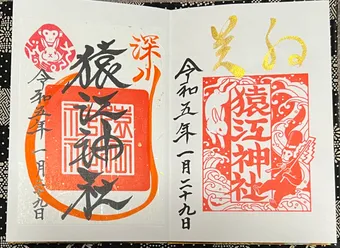 癸卯
令和五年一月二十九日
猿江神社
深川
猿江神社
令和五年一月二十九日